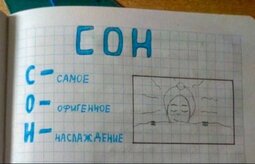 СОН
С - САМОЕ
О - ОФИГЕННОЕ
Н - НАСЛАЖДЕНИЕ